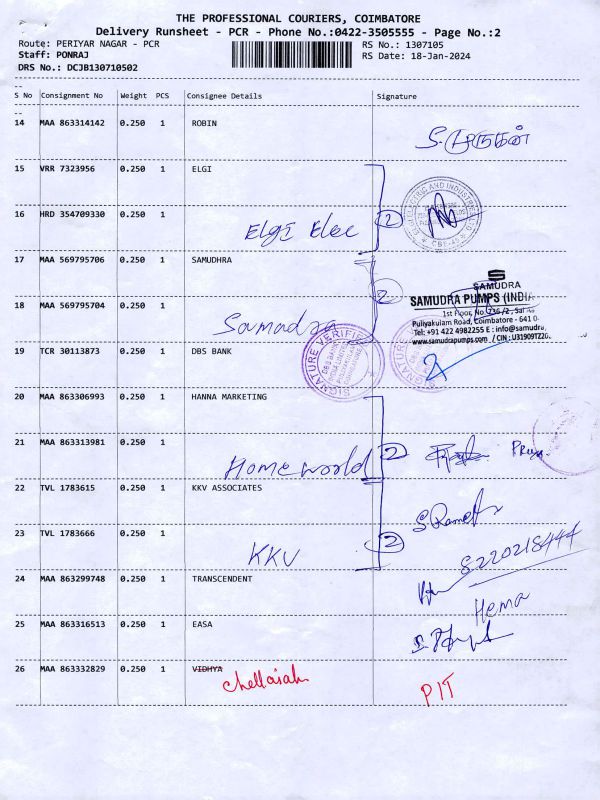 THE PROFESSIONAL COURIERS, COIMBATORE
Delivery Runsheet - PCR - Phone No.:0422-3505555 - Page No.:2
Route: PERIYAR NAGAR - PCR RS No.: 1307105
Staff: PONRAJ RS Date: 18-Jan-2024
DRS No.: DCJB130710502
S No Consignment No Weight PCS Consignee Details Signature
14 MAA 863314142 0.250 1 ROBIN
S. முருகன்
15 VRR 7323956 0.250 1 ELGI
16 HRD 354709330 0.250 1
Elgi Elec 2
17 MAA 569795706 0.250 1 SAMUDHRA
SAMUDRA
SAMUDRA PUMPS (INDIA
1st Floor, No.
Puliyakulam Road, Coimbatore - 641 0
Tel: +91 422 4982255 E : info@samudra
www.samudrapumps.com
18 MAA 569795704 0.250 1
Samadra 2
SIGNATURE VERIFIED
19 TCR 30113873 0.250 1 DBS BANK
20 MAA 863306993 0.250 1 HANNA MARKETING
21 MAA 863313981 0.250 1
Homeworld 2 Priya
22 TVL 1783615 0.250 1 KKV ASSOCIATES
23 TVL 1783666 0.250 1
KKV 2
8220218444
24 MAA 863299748 0.250 1 TRANSCENDENT
Hema
25 MAA 863316513 0.250 1 EASA
26 MAA 863332829 0.250 1 VIDHYA
Chellaiah PIT